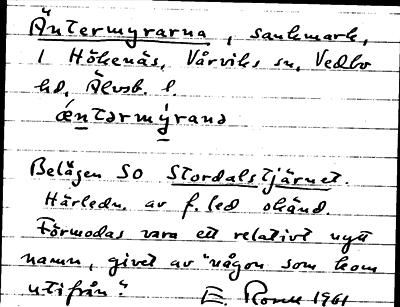 Äntermyrarna, sankmark,
i Hökenäs, Vårviks sn, Vedbo
hd, Älvsb. l.
ǽntərmýrana
Belägen SO Stordalstjärnet.
Härledn. av f. led okänd.
Förmodas vara ett relativt nytt
namn, givet av "någon som kom
utifrån" E. 1961